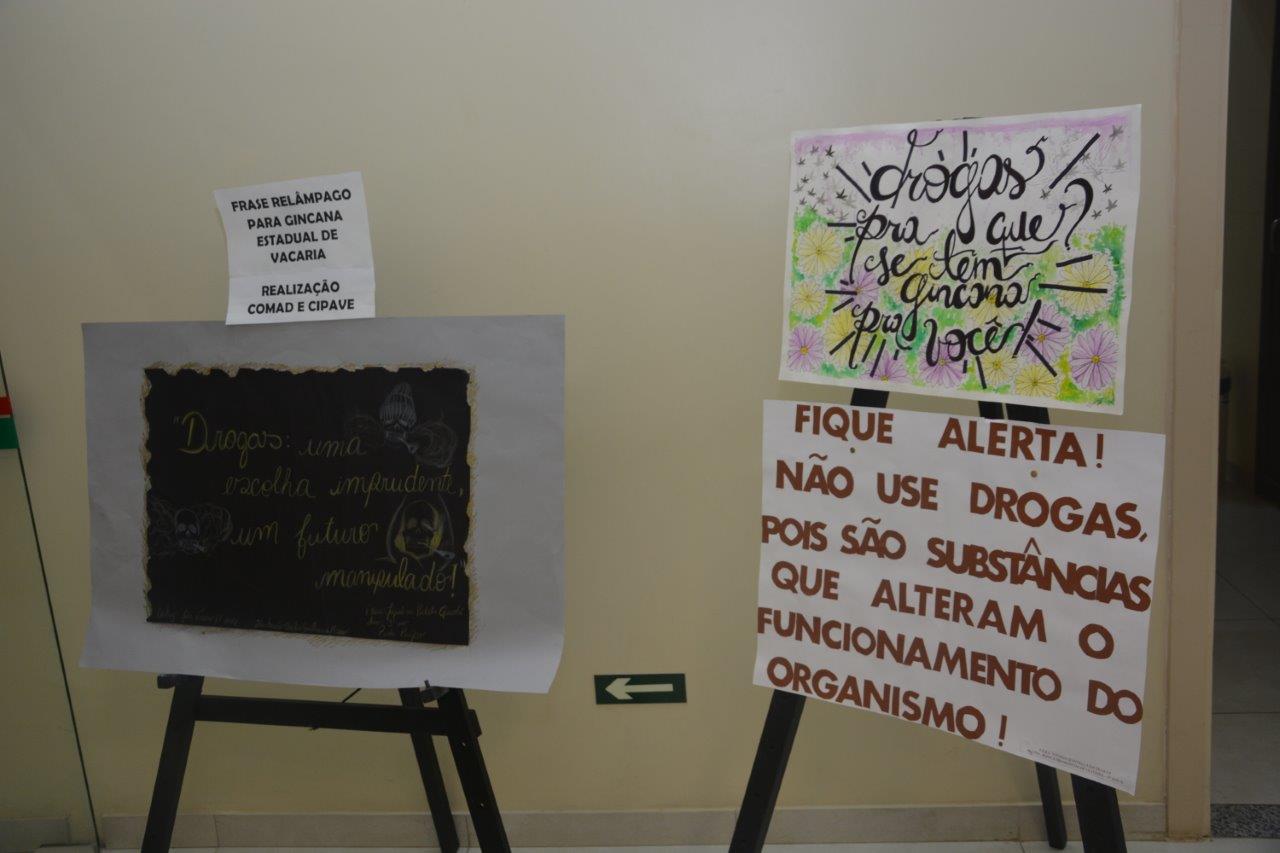 FRASE RELÂMPAGO
PARA GINCANA
ESTADUAL DE
VACARIA
REALIZAÇÃO
COMAD E CIPAVE
"Drogas: uma
escolha imprudente,
um futuro
manipulado!"
drogas
pra que?
se tem
gincana
pra você!
FIQUE ALERTA!
NÃO USE DROGAS,
POIS SÃO SUBSTÂNCIAS
QUE ALTERAM O
FUNCIONAMENTO DO
ORGANISMO!